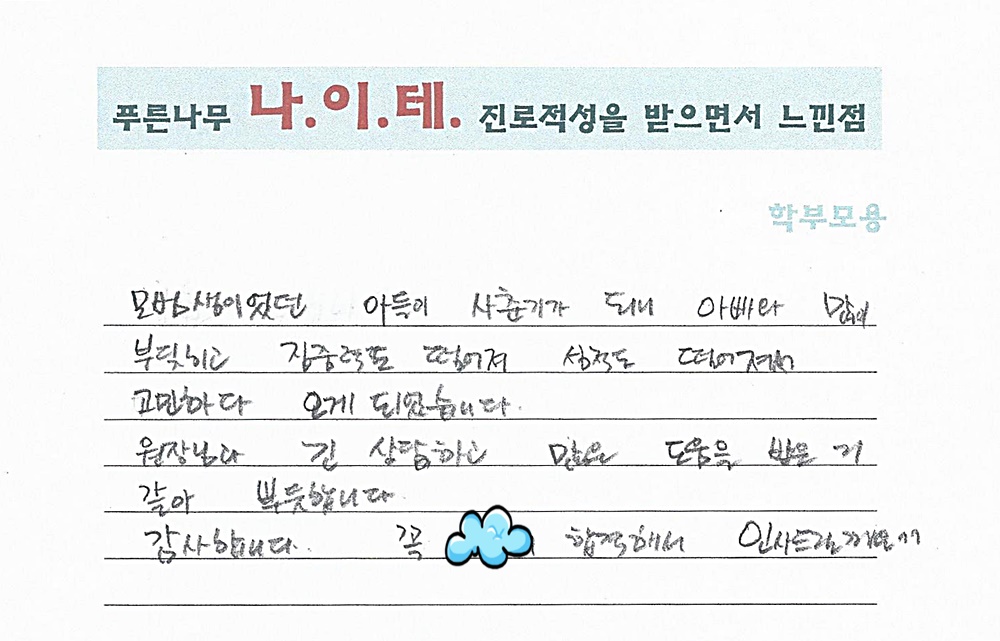 푸른나무 나.이.테. 진로적성을 받으면서 느낀점
학부모용
모범생이었던 아들이 사춘기가 되니 아빠와 많이
부딪히고 집중력도 떨어져 성적도 떨어져서
고민하다 오게 되었습니다.
원장님과 긴 상담하고 많은 도움을 받은 거
같아 뿌듯합니다
감사합니다. 꼭 합격해서 인사드릴게요^^